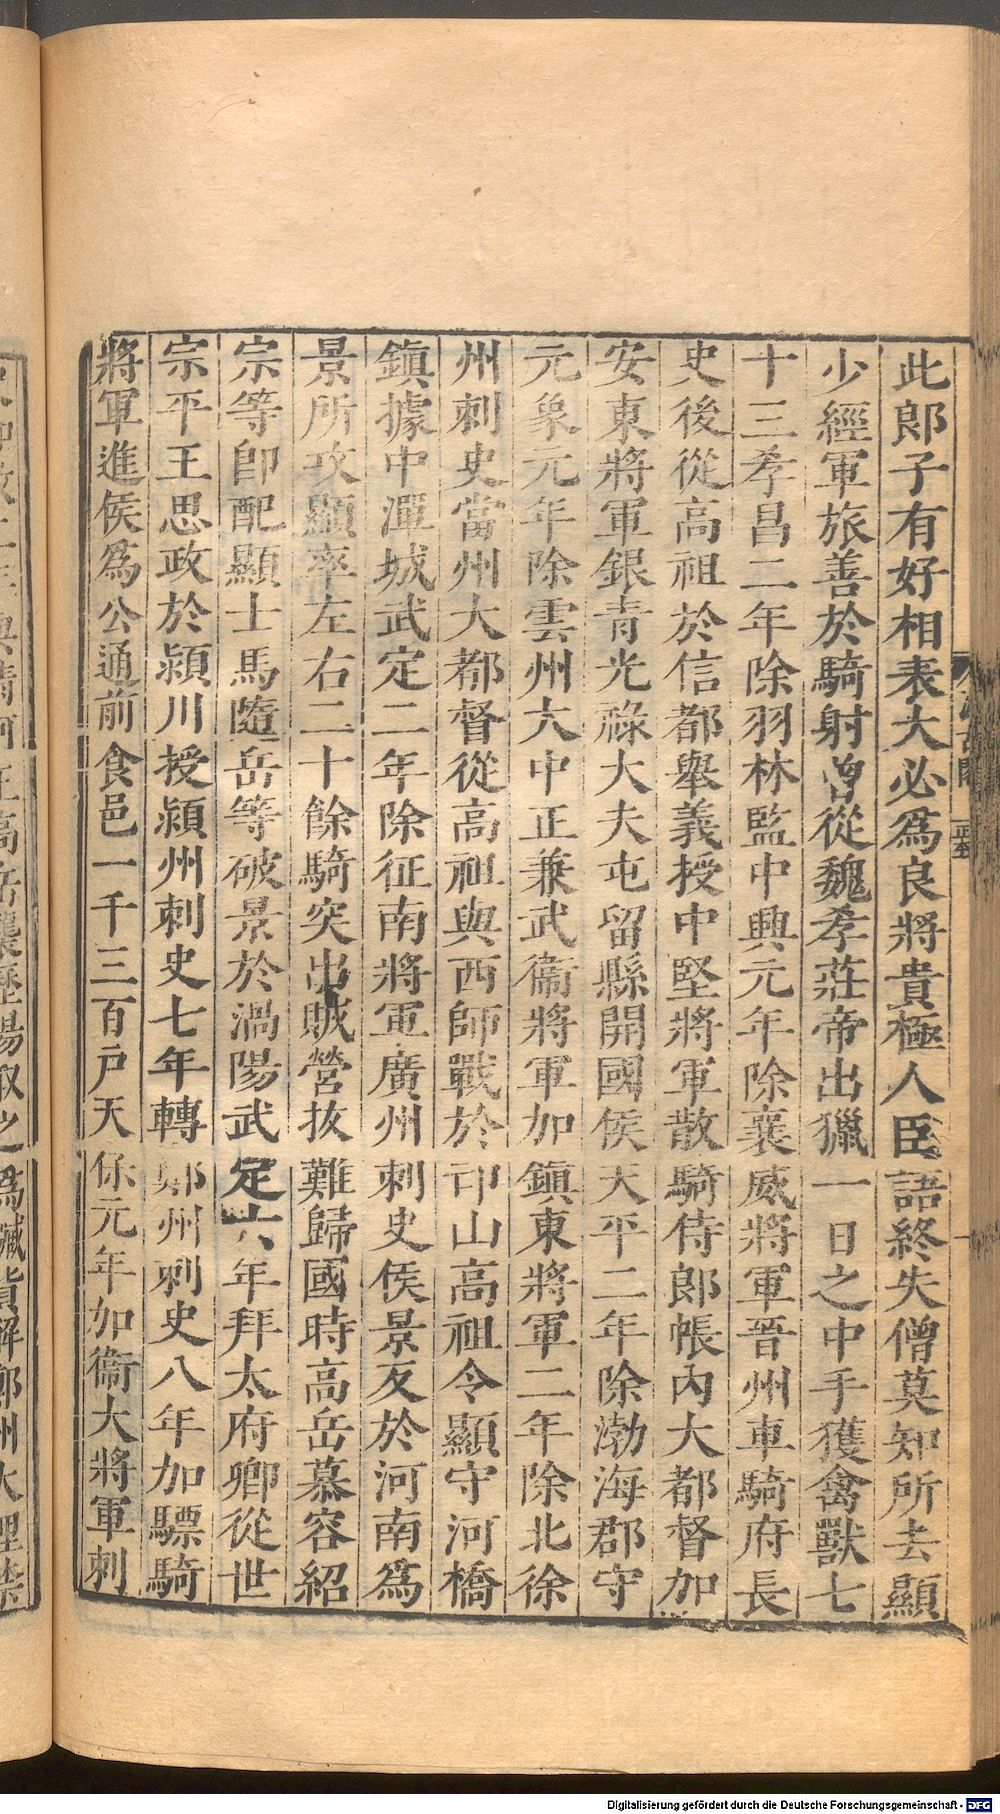 此郎子有好相表大必爲良將貴極人臣語終失僧莫知所去顯
少經軍旅善於騎射曾從魏孝莊帝出獵一日之中手獲禽獸七
十三孝昌二年除羽林監中興元年除襄威將軍晉州車騎府長
史後從高祖於信都舉義授中堅將軍散騎侍郎帳內大都督加
安東將軍銀青光祿大夫屯留縣開國侯天平二年除渤海郡守
元象元年除雲州大中正兼武衞將軍加鎮東將軍二年除北徐
州刺史當州大都督從高祖與西師戰於邙山高祖令顯守河橋
鎮據中潬城武定二年除征南將軍廣州刺史侯景反於河南爲
景所攻顯率左右二十餘騎突出賊營拔難歸國時高岳慕容紹
宗等即配顯士馬隨岳等破景於渦陽武定六年拜太府卿從世
宗平王思政於潁川授潁州刺史七年轉鄭州刺史八年加驃騎
將軍進侯爲公通前食邑一千三百戶天保元年加衞大將軍刺
Digitalisierung gefördert durch die Deutsche Forschungsgemeinschaft - DFG